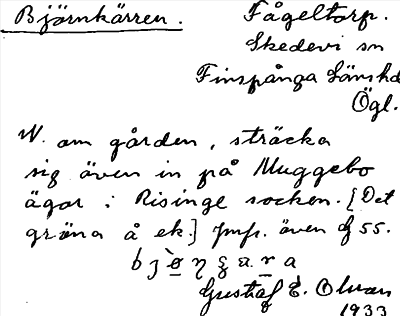 Björnkärren. Fågeltorp.
Skedevi sn
Finspånga Länshd
Ögl.
W. om gården, sträcka
sig även in på Muggebo
ägor i Risinge socken. [Det
gröna å ek.] Jmf. även f 55.
Gustaf E. Olsson
1933